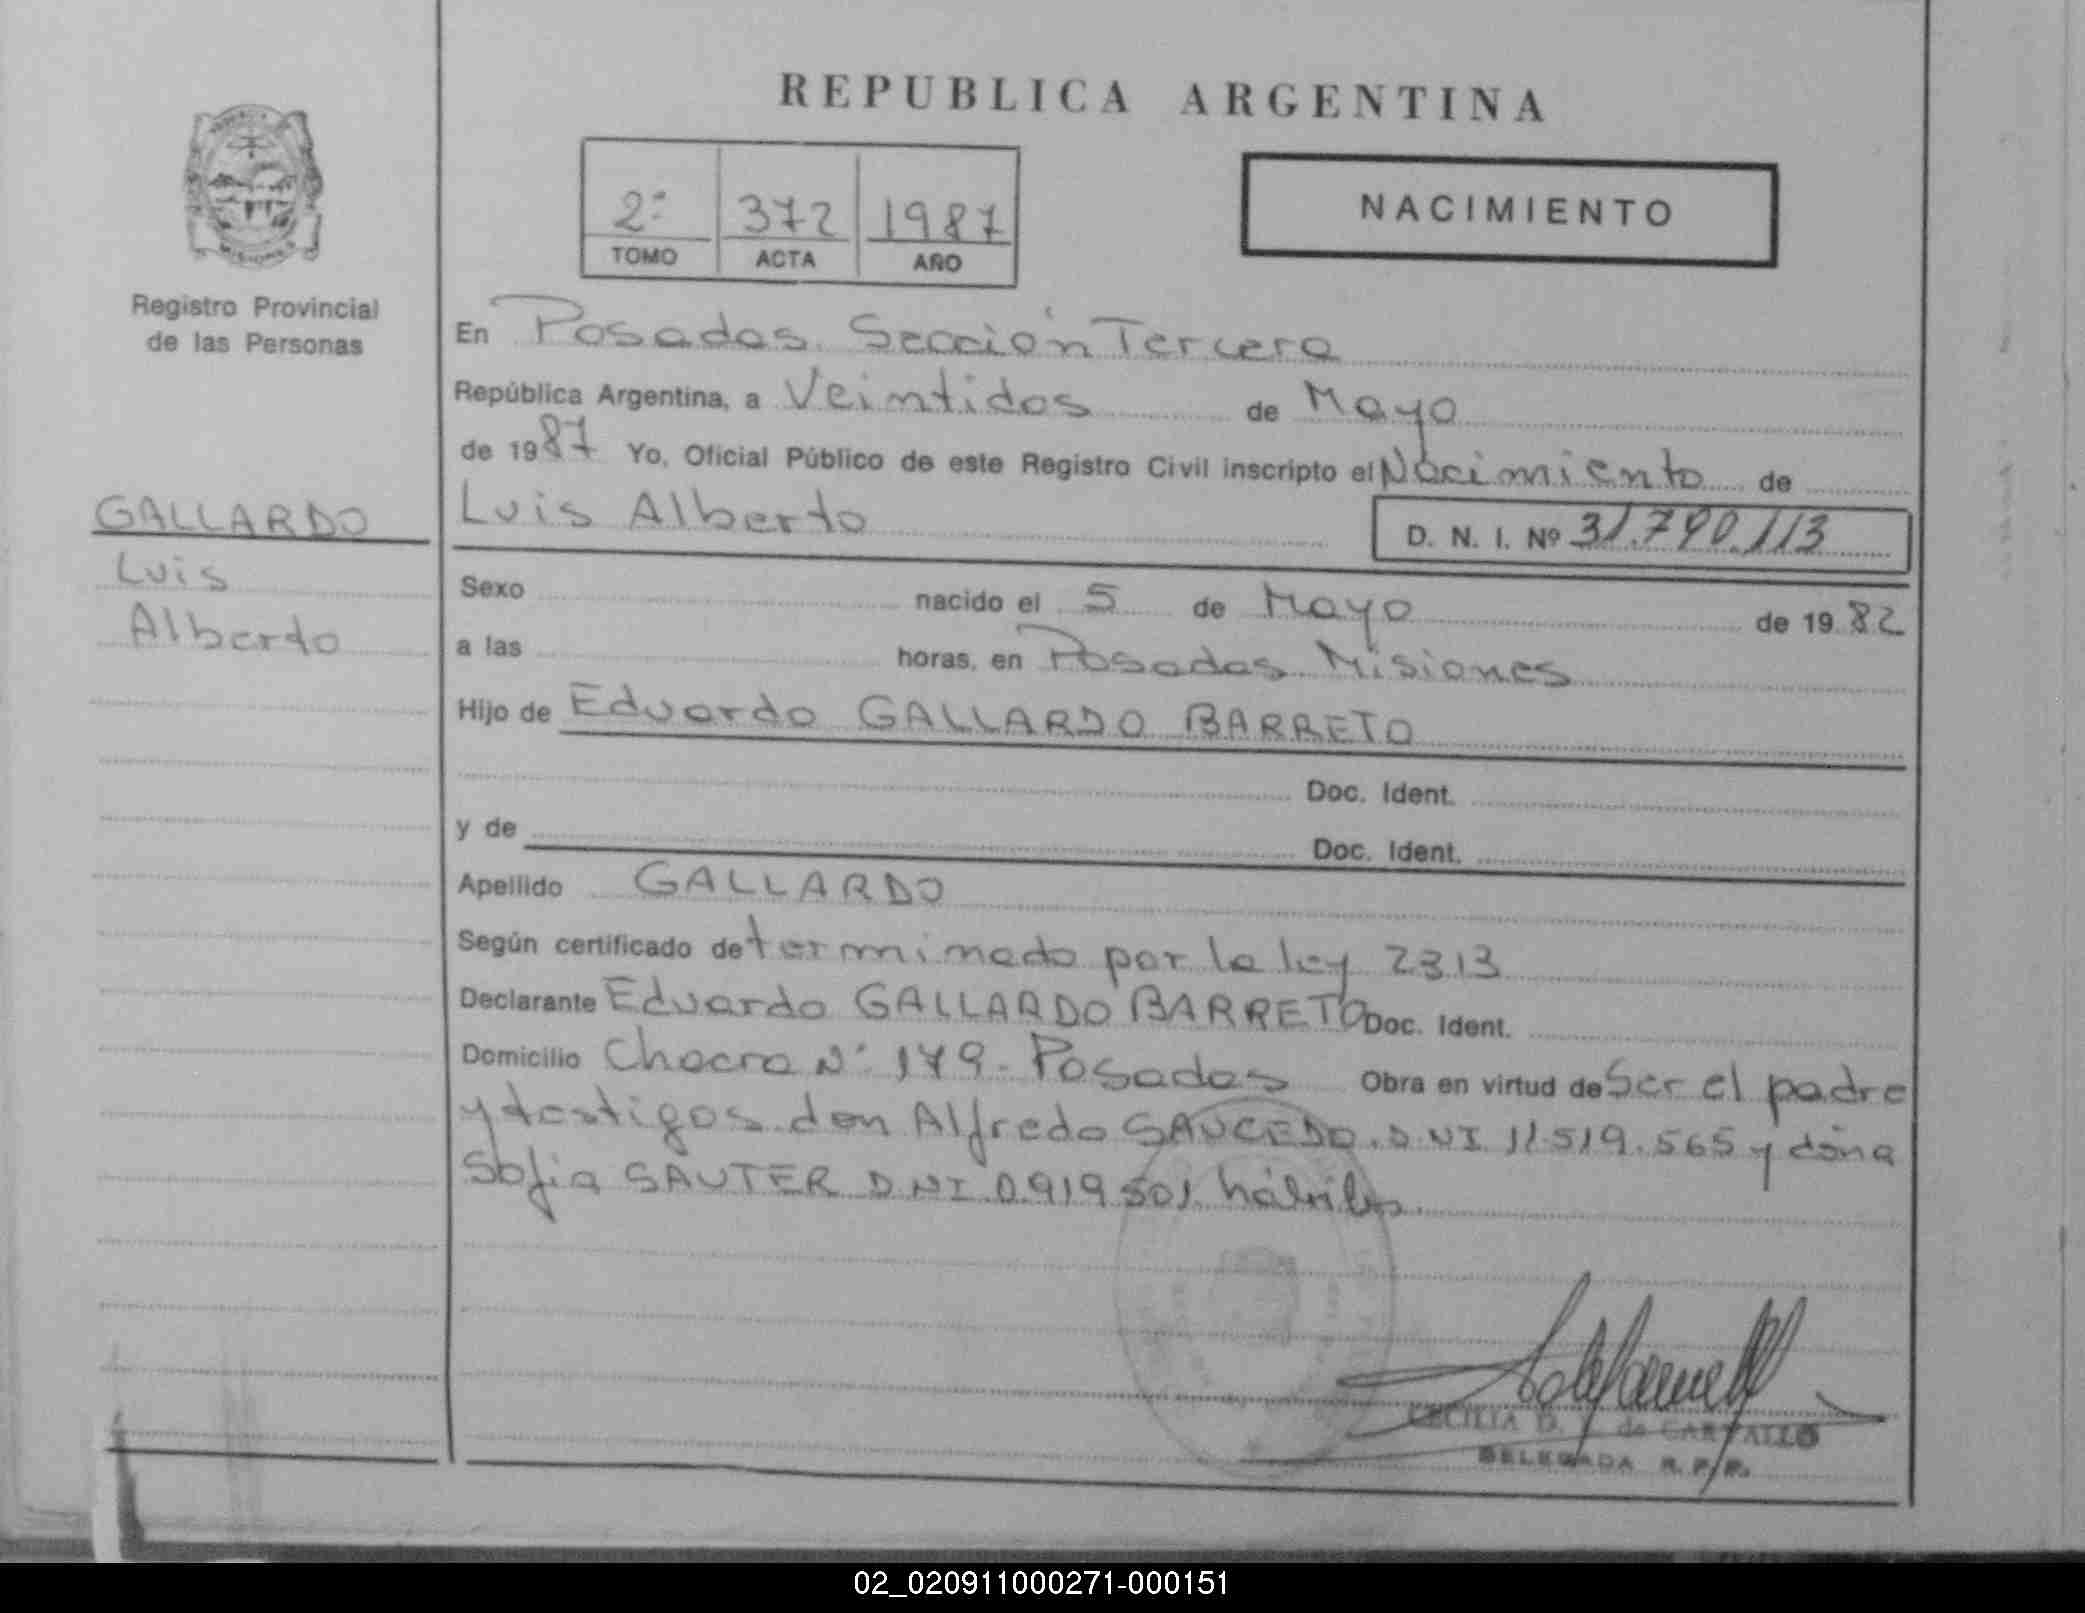 REPUBLICA ARGENTINA
2º 372 1987
TOMO ACTA AÑO
NACIMIENTO
Registro Provincial
de las Personas
En Posadas. Sección Tercera
República Argentina, a Veintidos de Mayo
de 1987 Yo, Oficial Público de este Registro Civil inscripto el Nacimiento de
Luis Alberto D. N. I. Nº 31.790.113
GALLARDO
Luis
Alberto
Sexo nacido el 5 de Mayo de 1982
a las horas, en Posadas Misiones
Hijo de Eduardo GALLARDO BARRETO
Doc. Ident.
y de Doc. Ident.
Apellido GALLARDO
Según certificado determinado por la ley 2313
Declarante Eduardo GALLARDO BARRETO Doc. Ident.
Domicilio Chacra Nº 179- Posadas Obra en virtud de Ser el padre
y testigos don Alfredo SAUCEDO. DNI 11.519.565 y doña
Sofia SAUTER DNI 0.919.501 hábiles
CECILIA D. de CARVALLO
DELEGADA R.P.P.
02_020911000271-000151